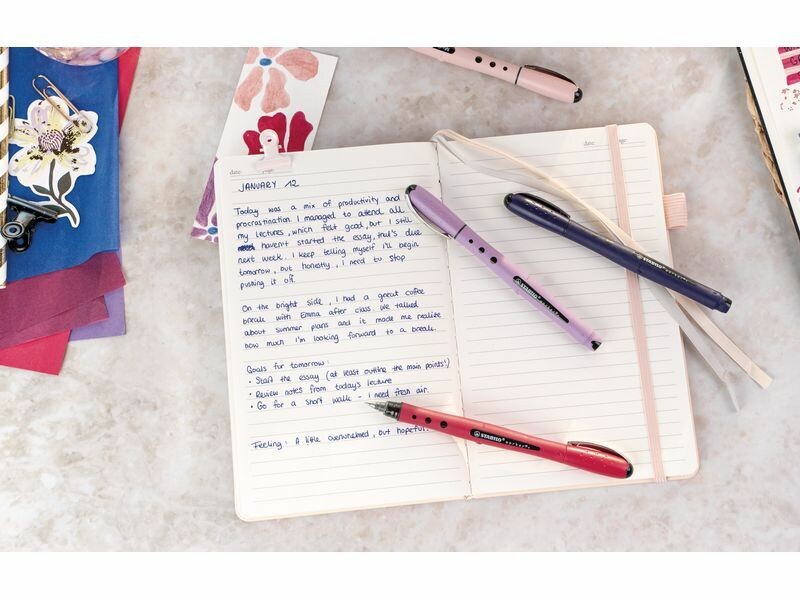 date
page
JANUARY 12
Today was a mix of productivity and
procrastination. I managed to attend all
my lectures, which felt good, but I still
haven't started the essay, that's due
next week. I keep telling myself I'll begin
tomorrow, but honestly, I need to stop
pushing it off.
On the bright side, I had a great coffee
break with Emma after class. We talked
about summer plans and it made me realize
how much I'm looking forward to a break.
Goals for tomorrow:
• Start the essay (at least outline the main points!)
• Review notes from today's lecture
• Go for a short walk - I need fresh air.
Feeling: A little overwhelmed, but hopeful.
date
page
STABILO worker
STABILO
STABILO worker